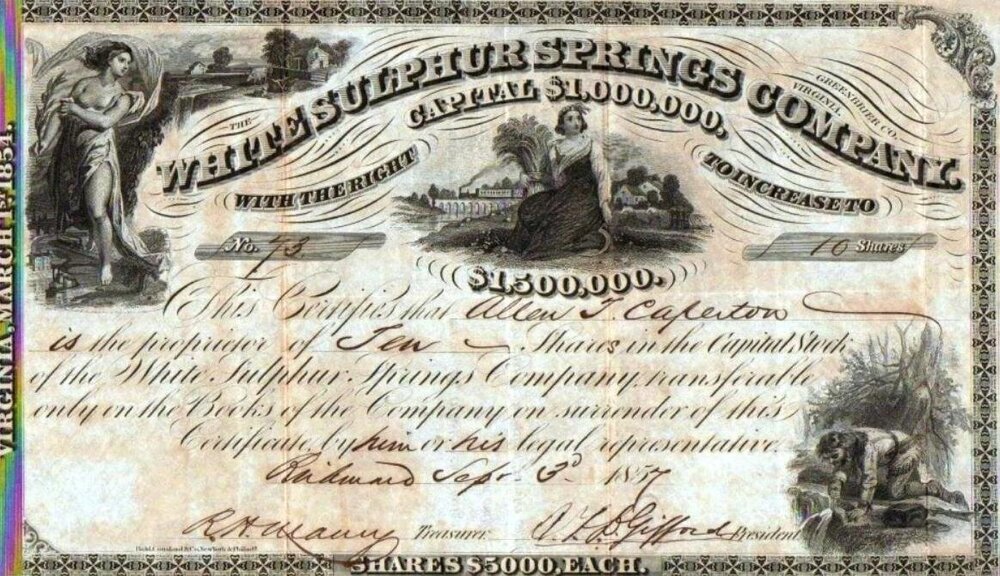 THE
WHITE SULPHUR SPRINGS COMPANY.
GREENBRIER CO.
VIRGINIA
CAPITAL $1,000,000,
WITH THE RIGHT
TO INCREASE TO
No. 73
10 Shares
$1,500,000.
This Certifies that Allen T. Caperton
is the proprietor of Ten Shares in the Capital Stock
of the White Sulphur Springs Company, transferable
only on the Books of the Company on surrender of this
Certificate, by him or his legal representative.
Richmond Sept 3d 1857
R. H. Maury Treasurer. President
SHARES $5000, EACH.
VIRGINIA, MARCH 1854.